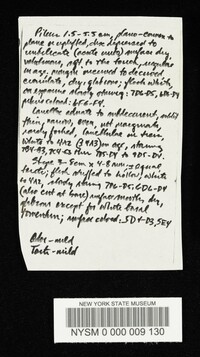 Pileus 1.5-5.5 cm, plano-convex to
plane or uplifted, disc depressed to
umbilicate (acute umbo) surface dry,
soft to the touch,
in age, margin incurved to decurved
flesh white,
on exposure slowly staining: 7D6-D5, 6D5-D4
pileus colored: 6F6-F4.
Lamellae adnate to subdecurrent,
thin, narrow, even, not marginate
rarely forked, lamellulae in
White to 4A2 (3 9A3) in age, staining
7B4-B3, 7C4-C3 then 7D5-D4 to 9D5-D4.
Stipe 3-5cm x 4-8mm, equal
terete; flesh stuffed to hollow, white
to 4A2, slowly staining 7D6-D5; 6D6-D4
(also cut at base) surface smooth, dry,
glabrous except for white basal
tomentum; surface colored: 5D4-D3, 5E4
Odor - mild
Taste - mild
NEW YORK STATE MUSEUM
NYSM 0 000 009 130